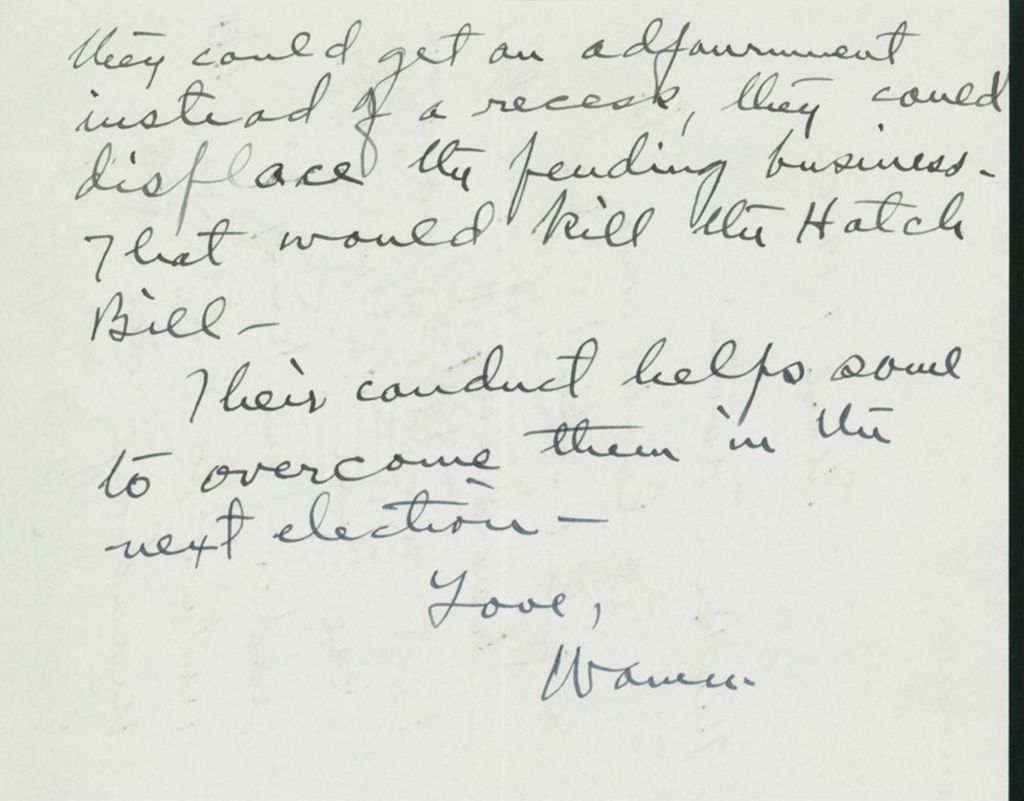 they could get an adjournment
instead of a recess, they could
displace the pending business.
That would kill the Hatch
Bill—
Their conduct helps some
to overcome them in the
next election—
Love,
Warren.